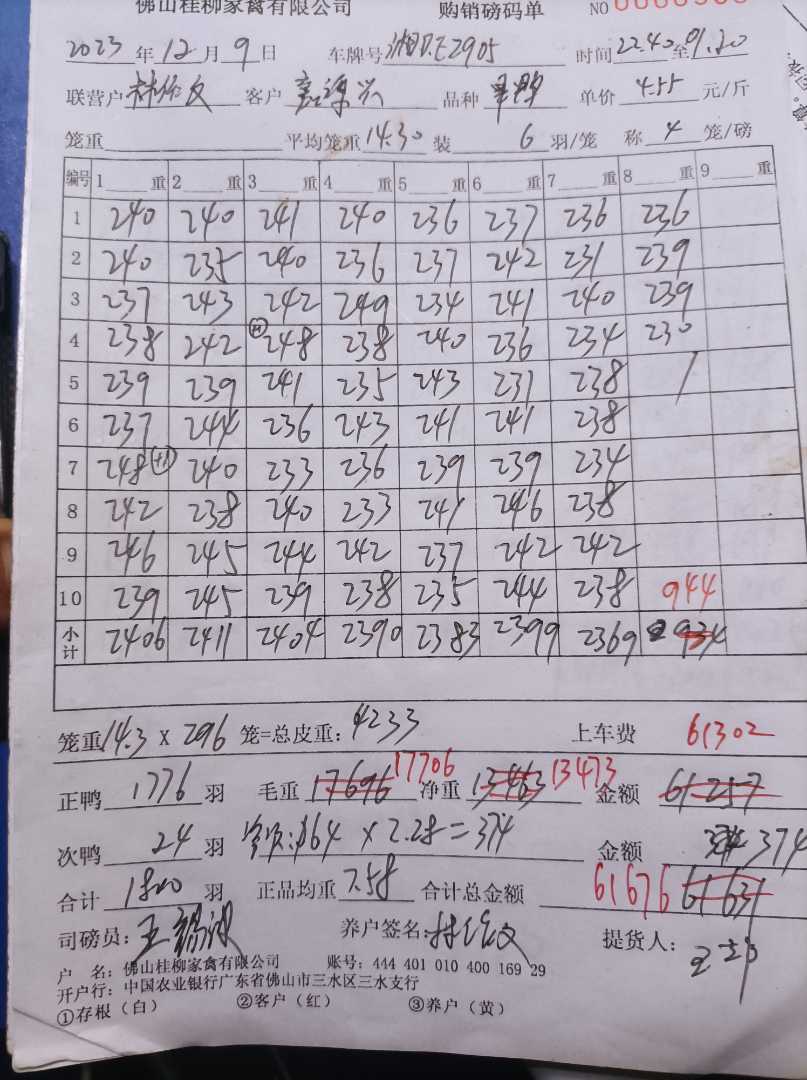 佛山桂柳家禽有限公司 购销磅码单 NO
2023 年 12 月 9 日 车牌号 湘D.E2905 时间 22.40 至 01.20
联营户 林伦文 客户 鑫源兴 品种 单价 4.55 元/斤
笼重 平均笼重 14.30 装 6 羽/笼 称 4 笼/磅
编号 1 重 2 重 3 重 4 重 5 重 6 重 7 重 8 重 9 重
1 240 240 241 240 236 237 236 236
2 240 235 240 236 237 242 231 239
3 237 243 242 249 234 241 240 239
4 238 242 248 238 240 236 234 230
5 239 239 241 235 243 231 238 /
6 237 244 236 243 241 241 238
7 248 240 233 236 239 239 234
8 242 238 240 233 241 246 238
9 246 245 244 242 237 242 242
10 239 245 239 238 235 244 238 944
小计 2406 2411 2404 2390 2383 2399 2369 934
笼重 14.3 X 296 笼=总皮重: 4233 上车费 61302
正鸭 1776 羽 毛重 17696 17706 净重 13463 13473 金额 61257
次鸭 24 羽 164 x 2.28 = 374 金额 374
合计 1800 羽 正品均重 7.58 合计总金额 61676 61631
司磅员: 养户签名: 林伦文 提货人:
户 名: 佛山桂柳家禽有限公司 账号: 444 401 010 400 169 29
开户行: 中国农业银行广东省佛山市三水区三水支行
①存根（白） ②客户（红） ③养户（黄）